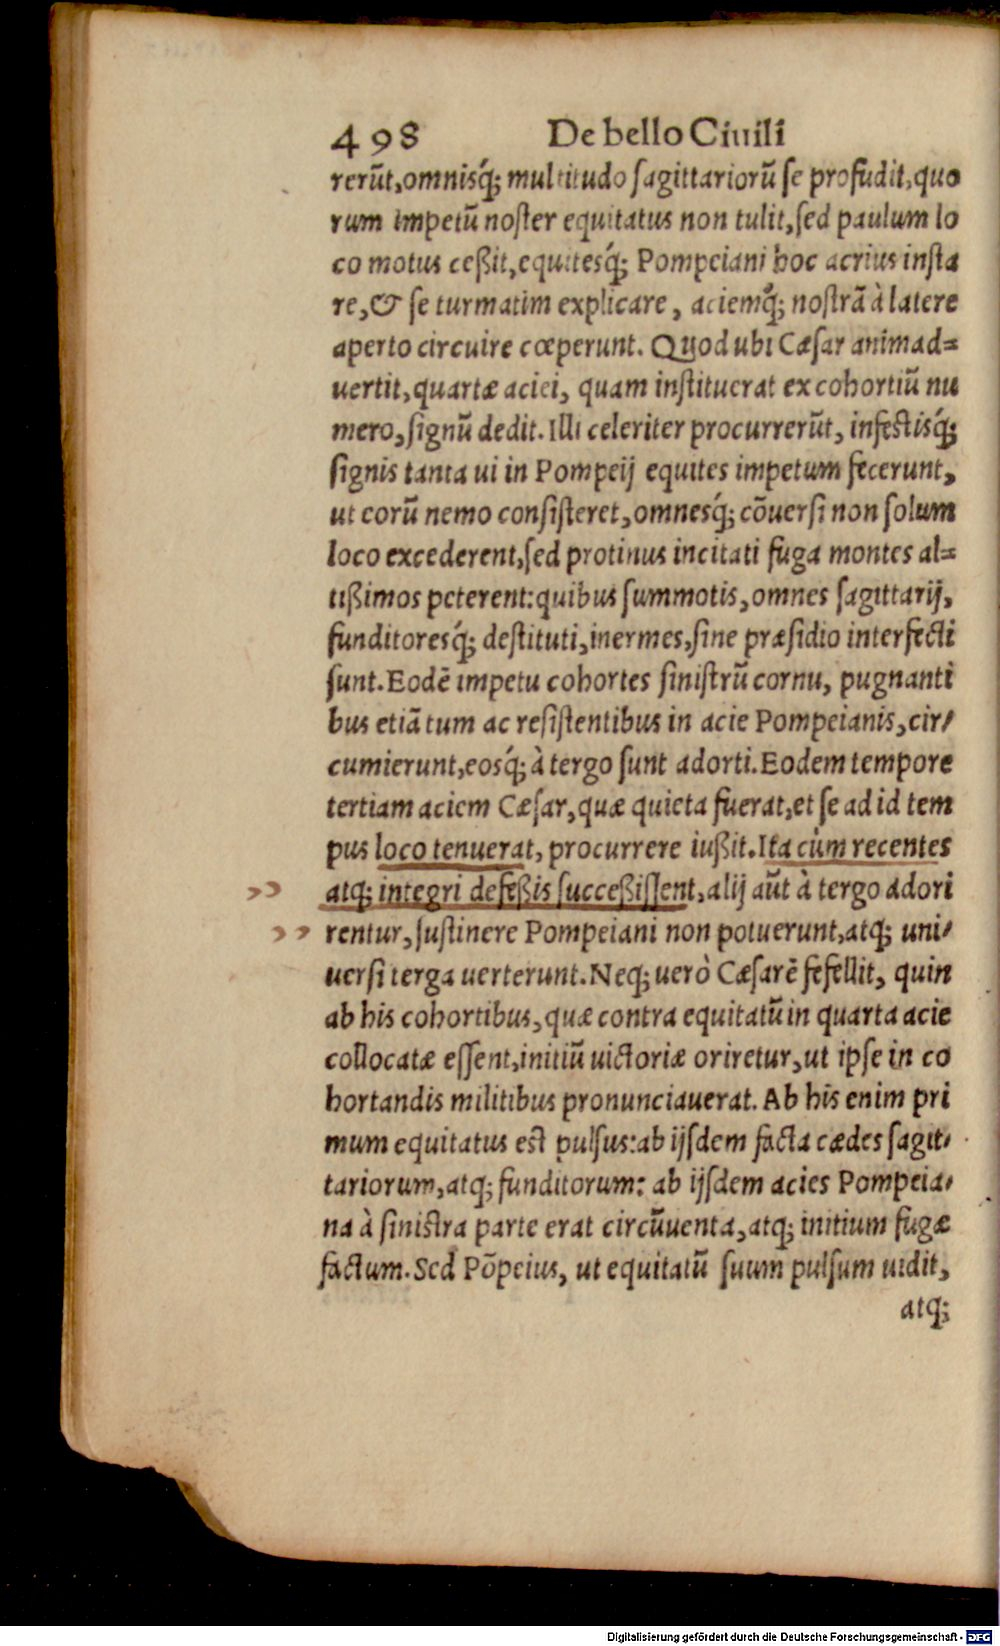 498 De bello Ciuili
rerūt,omnisq́; multitudo ſagittariorū ſe profudit,quo
rum impetū noſter equitatus non tulit,ſed paulum lo
co motus ceßit,equitesq́; Pompeiani hoc acrius inſta
re,& ſe turmatim explicare, aciemq́; noſtrā à latere
aperto circuire cœperunt. Quod ubi Cæſar animad=
uertit,quartæ aciei, quam inſtituerat ex cohortiū nu
mero,ſignū dedit. Illi celeriter procurrerūt, infeſtisq́;
ſignis tanta ui in Pompeij equites impetum fecerunt,
ut eorū nemo conſiſteret,omnesq́; cōuerſi non ſolum
loco excederent,ſed protinus incitati fuga montes al=
tißimos peterent:quibus ſummotis,omnes ſagittarij,
funditoresq́; deſtituti,inermes,ſine præſidio interfecti
ſunt.Eodē impetu cohortes ſiniſtrū cornu, pugnanti
bus etiā tum ac reſiſtentibus in acie Pompeianis,cir/
cumierunt,eosq́; à tergo ſunt adorti.Eodem tempore
tertiam aciem Cæſar,quæ quieta fuerat,et ſe ad id tem
pus loco tenuerat, procurrere iußit.Ita cùm recentes
atq; integri defeßis ſucceßiſſent,alij aūt à tergo adori
rentur,ſuſtinere Pompeiani non potuerunt,atq; uni/
uerſi terga uerterunt.Neq; uerò Cæſarē fefellit, quin
ab his cohortibus,quæ contra equitatū in quarta acie
collocatæ eſſent,initiū uictoriæ oriretur,ut ipſe in co
hortandis militibus pronunciauerat. Ab his enim pri
mum equitatus eſt pulſus:ab ijſdem facta cædes ſagit/
tariorum,atq; funditorum: ab ijſdem acies Pompeia/
na à ſiniſtra parte erat circūuenta,atq; initium fugæ
factum.Sed Pōpeius, ut equitatū ſuum pulſum uidit,
atq;
Digitalisierung gefördert durch die Deutsche Forschungsgemeinschaft - DFG